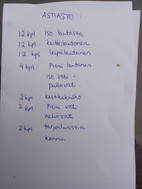 ASTIASTO:
12 kpl iso lautasta
12 kpl keittolautanen
12 kpl leipälautanen
4 kpl Pieni lautanen
iso vati -
2 kpl kastikekulho
2 kpl Pieni vati
neliöt
2 kpl tarjoiluastia
kannu